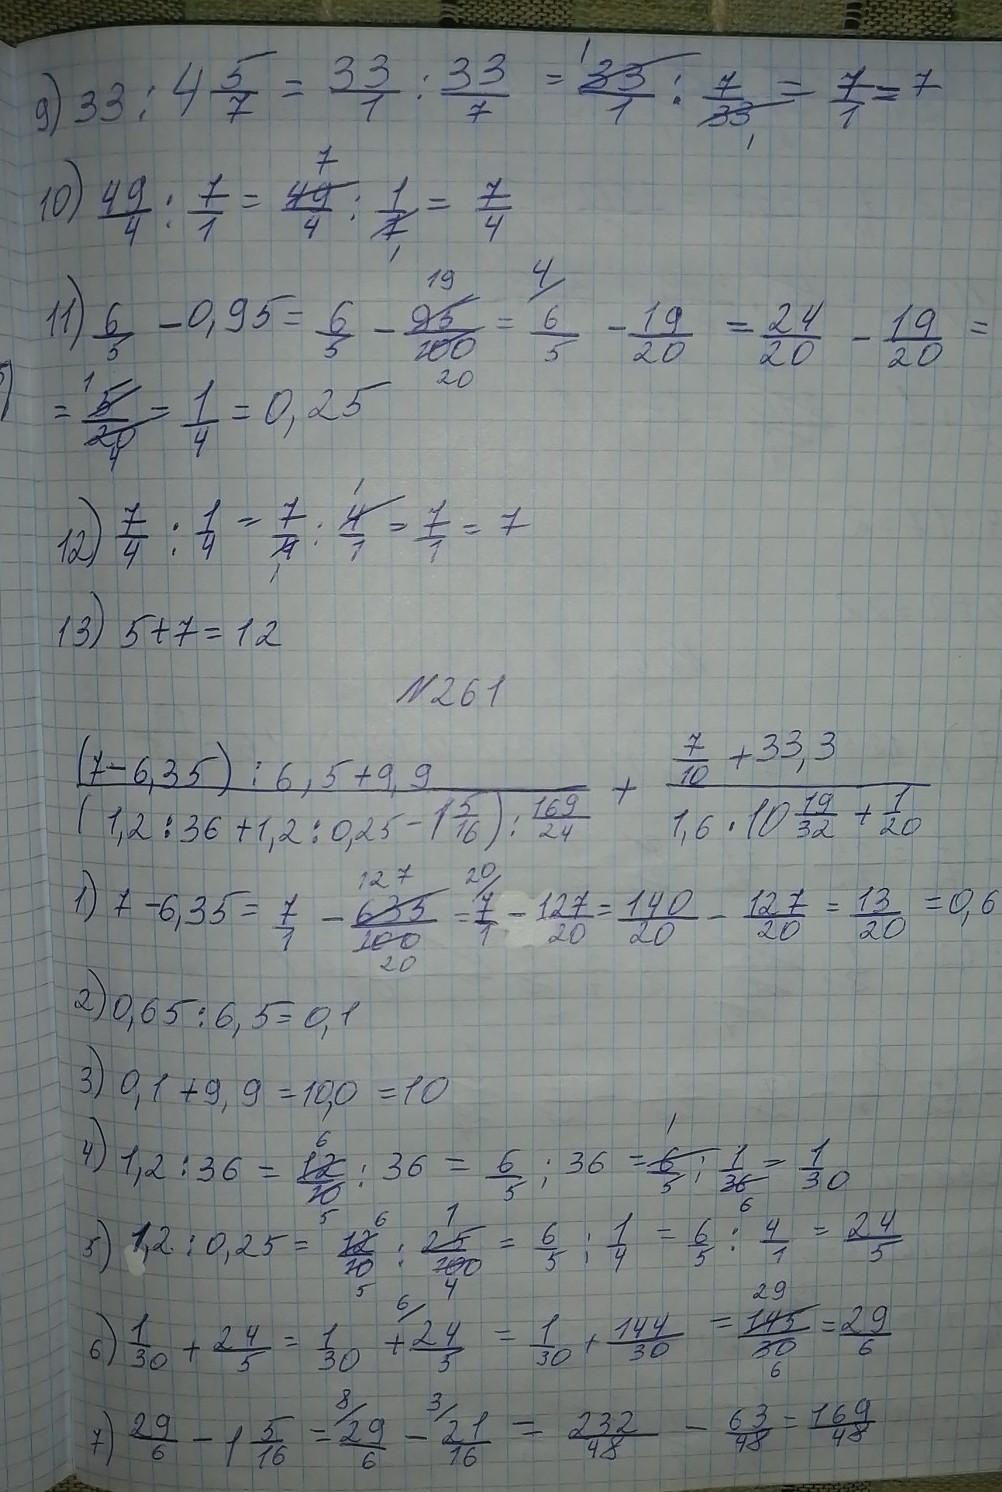 9) 33 : 4 5/7 = 33/1 : 33/7 = 33/1 : 7/33 = 7/1 = 7
10) 49/4 : 7/1 = 49/4 : 1/7 = 7/4
11) 6/5 - 0,95 = 6/5 - 95/100 = 6/5 - 19/20 = 24/20 - 19/20 =
= 5/20 = 1/4 = 0,25
12) 7/4 : 1/4 = 7/4 : 4/1 = 7/1 = 7
13) 5+7=12
N261
(7-6,35) : 6,5+9,9 / (1,2:36+1,2:0,25-1 5/16) : 169/24 + 7/10 + 33,3 / 1,6 · 10 19/32 + 1/20
1) 7-6,35 = 7/1 - 635/100 = 7/1 - 127/20 = 140/20 - 127/20 = 13/20 = 0,6
2) 0,65:6,5=0,1
3) 0,1+9,9=10,0=10
4) 1,2:36 = 12/10 : 36 = 6/5 : 36 = 6/5 : 1/36 = 1/30
5) 1,2:0,25 = 12/10 : 25/100 = 6/5 : 1/4 = 6/5 : 4/1 = 24/5
6) 1/30 + 24/5 = 1/30 + 24/5 = 1/30 + 144/30 = 145/30 = 29/6
7) 29/6 - 1 5/16 = 29/6 - 21/16 = 232/48 - 63/48 = 169/48